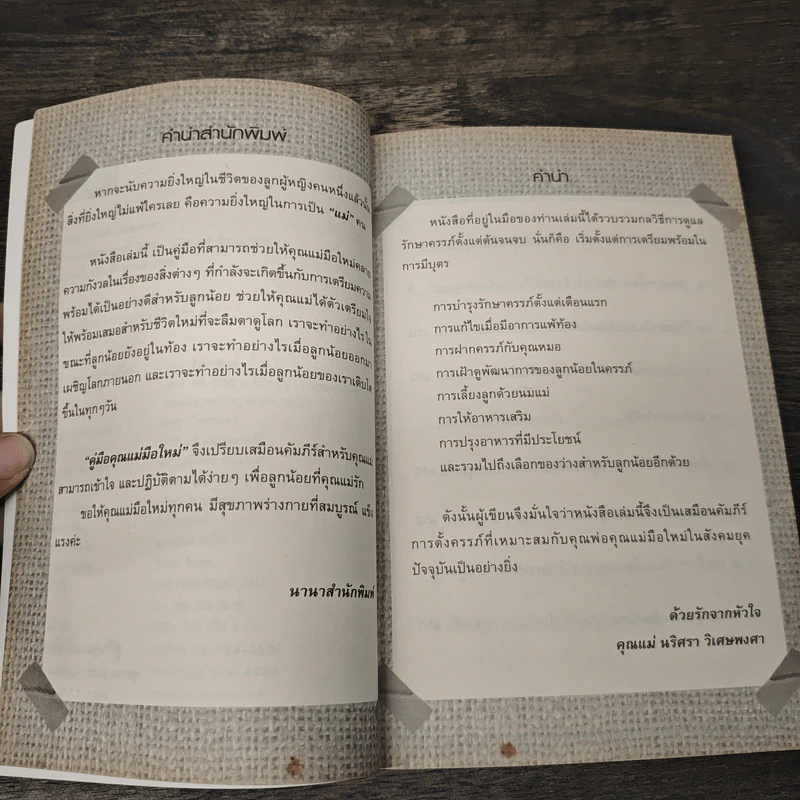 คำนำสำนักพิมพ์
หากจะนับความยิ่งใหญ่ในชีวิตของลูกผู้หญิงคนหนึ่งแล้วนั้น
สิ่งที่ยิ่งใหญ่ไม่แพ้ใครเลย คือความยิ่งใหญ่ในการเป็น “แม่” คน
หนังสือเล่มนี้ เป็นคู่มือที่สามารถช่วยให้คุณแม่มือใหม่คลาย
ความกังวลในเรื่องของสิ่งต่างๆ ที่กำลังจะเกิดขึ้นกับการเตรียมความ
พร้อมได้เป็นอย่างดีสำหรับลูกน้อย ช่วยให้คุณแม่ได้ตัวเตรียมใจ
ให้พร้อมเสมอสำหรับชีวิตใหม่ที่จะลืมตาดูโลก เราจะทำอย่างไรใน
ขณะที่ลูกน้อยยังอยู่ในท้อง เราจะทำอย่างไรเมื่อลูกน้อยออกมา
เผชิญโลกภายนอก และเราจะทำอย่างไรเมื่อลูกน้อยของเราเติบโต
ขึ้นในทุกๆวัน
“คู่มือคุณแม่มือใหม่” จึงเปรียบเสมือนคัมภีร์สำหรับคุณแม่
สามารถเข้าใจ และปฏิบัติตามได้ง่ายๆ เพื่อลูกน้อยที่คุณแม่รัก
ขอให้คุณแม่มือใหม่ทุกคน มีสุขภาพร่างกายที่สมบูรณ์ แข็ง
แรงค่ะ
นานาสำนักพิมพ์
คำนำ
หนังสือที่อยู่ในมือของท่านเล่มนี้ได้รวบรวมกลวิธีการดูแล
รักษาครรภ์ตั้งแต่ต้นจนจบ นั่นก็คือ เริ่มตั้งแต่การเตรียมพร้อมใน
การมีบุตร
การบำรุงรักษาครรภ์ตั้งแต่เดือนแรก
การแก้ไขเมื่อมีอาการแพ้ท้อง
การฝากครรภ์กับคุณหมอ
การเฝ้าดูพัฒนาการของลูกน้อยในครรภ์
การเลี้ยงลูกด้วยนมแม่
การให้อาหารเสริม
การปรุงอาหารที่มีประโยชน์
และรวมไปถึงเลือกของว่างสำหรับลูกน้อยอีกด้วย
ดังนั้นผู้เขียนจึงมั่นใจว่าหนังสือเล่มนี้จึงเป็นเสมือนคัมภีร์
การตั้งครรภ์ที่เหมาะสมกับคุณพ่อคุณแม่มือใหม่ในสังคมยุค
ปัจจุบันเป็นอย่างยิ่ง
ด้วยรักจากหัวใจ
คุณแม่ นริศรา วิเศษพงศา